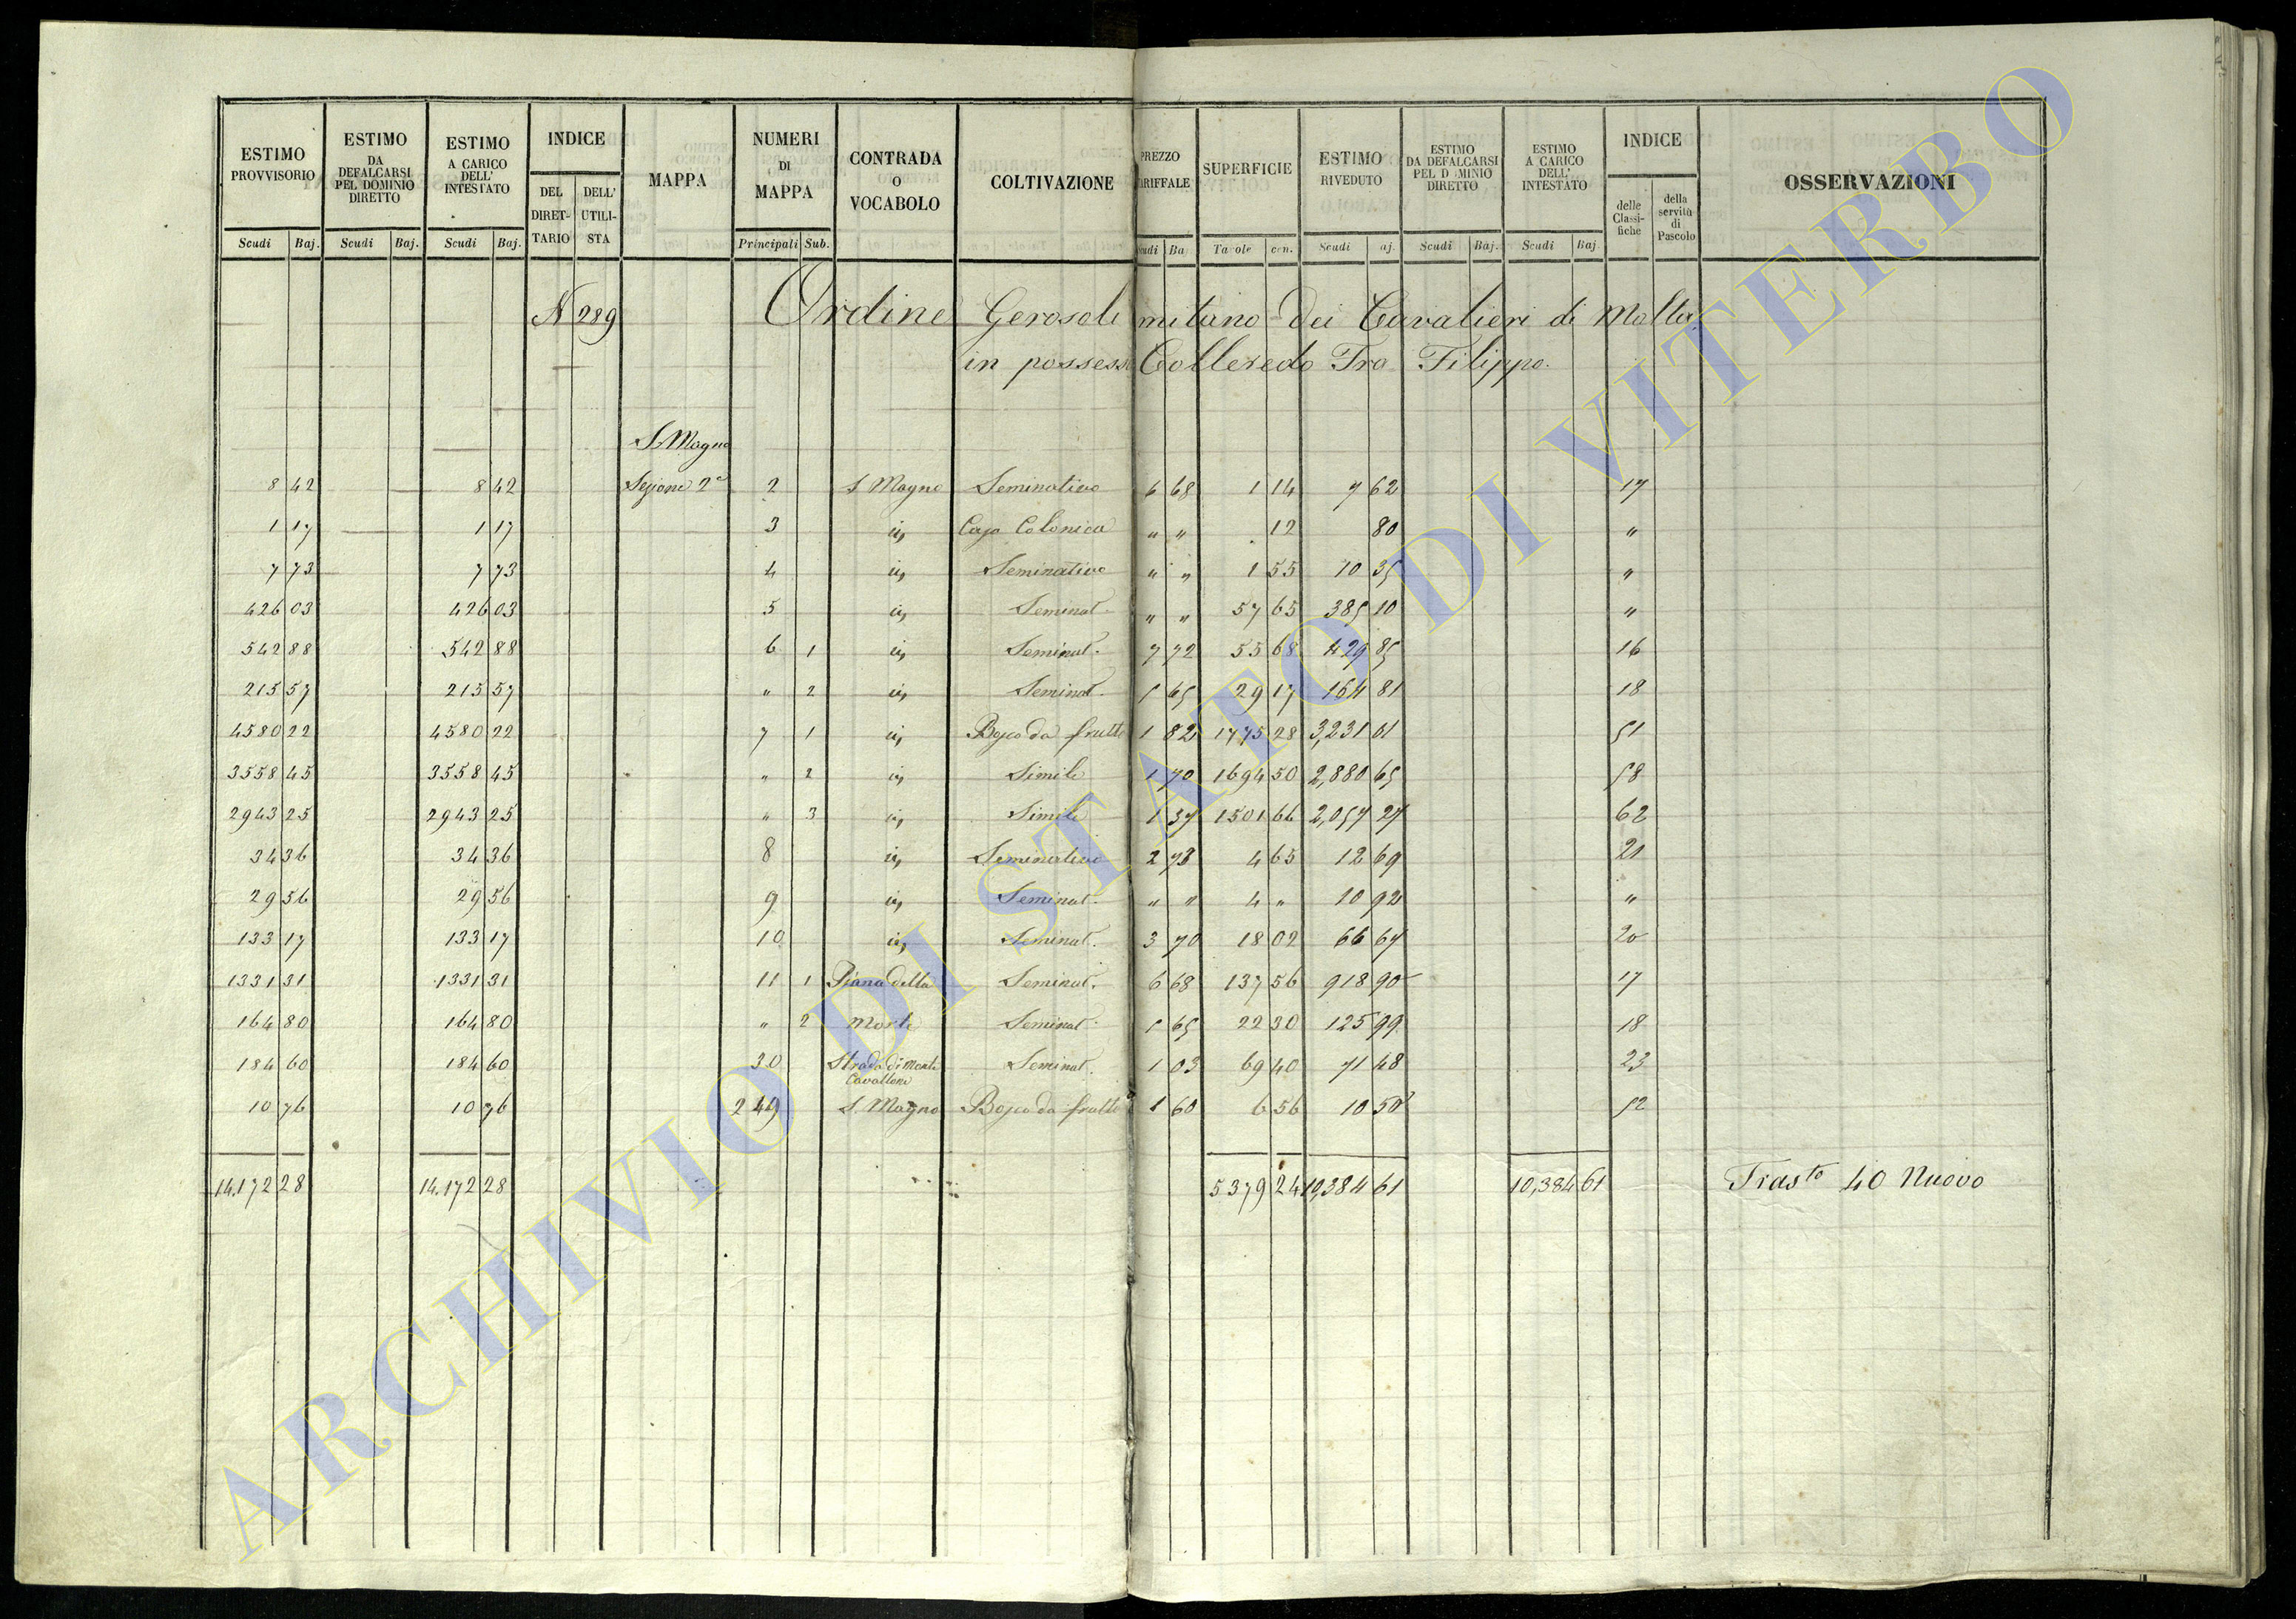 ESTIMO PROVVISORIO | ESTIMO DA DEFALCARSI PEL DOMINIO DIRETTO | ESTIMO A CARICO DELL' INTESTATO | INDICE | MAPPA | NUMERI DI MAPPA | CONTRADA O VOCABOLO | COLTIVAZIONE | PREZZO ARIFFALE | SUPERFICIE | ESTIMO RIVEDUTO | ESTIMO DA DEFALCARSI PEL D MINIO DIRETTO | ESTIMO A CARICO DELL' INTESTATO | INDICE | OSSERVAZIONI
DEL DIRETTARIO | DELL' UTILISTA | delle Classifiche | della servitù di Pascolo
Scudi | Baj. | Scudi | Baj. | Scudi | Baj. | Principali | Sub. | cudi | Ba | Tavole | cen. | Scudi | aj. | Scudi | Baj. | Scudi | Baj.
N 289 Ordine Gerosolimitano Dei Cavalieri di Malta
in possesso Colleredo Fra Filippo.
S. Magno
8 42 | 8 42 | Sezione 2ª | 2 | S. Magno | Seminativo | 6 68 | 1 14 | 7 62 | 17
1 17 | 1 17 | 3 | id | Casa Colonica | " " | 12 | 80 | "
7 73 | 7 73 | 4 | id | Seminativo | " " | 1 55 | 10 35 | "
426 03 | 426 03 | 5 | id | Seminat. | " " | 57 65 | 385 10 | "
542 88 | 542 88 | 6 | 1 | id | Seminat. | 7 72 | 55 68 | 429 85 | 16
215 57 | 215 57 | " | 2 | id | Seminat. | 5 65 | 29 17 | 164 81 | 18
4580 22 | 4580 22 | 7 | 1 | id | Bosco da frutto | 1 82 | 1775 28 | 3,231 01 | 51
3558 45 | 3558 45 | " | 2 | id | Simile | 1 70 | 1694 50 | 2,880 65 | 58
2943 25 | 2943 25 | " | 3 | id | Simile | 1 37 | 1501 66 | 2,057 27 | 62
34 36 | 34 36 | 8 | id | Seminativo | 2 73 | 4 65 | 12 69 | 21
29 56 | 29 56 | 9 | id | Seminat. | " " | 4 " | 10 92 | "
133 17 | 133 17 | 10 | id | Seminat. | 3 70 | 18 02 | 66 67 | 20
1331 31 | 1331 31 | 11 | 1 | Piana della | Seminat. | 6 68 | 137 56 | 918 90 | 17
164 80 | 164 80 | " | 2 | Morte | Seminat. | 5 65 | 22 30 | 125 99 | 18
184 60 | 184 60 | 30 | Strada di Monte Cavallone | Seminat. | 1 03 | 69 40 | 71 48 | 23
10 76 | 10 76 | 249 | S. Magno | Bosco da frutto | 1 60 | 6 56 | 10 50 | 52
14.172 28 | 14.172 28 | 5379 24 | 10,384 61 | 10,384 61 | Trasto 40 Nuovo
ARCHIVIO DI STATO DI VITERBO